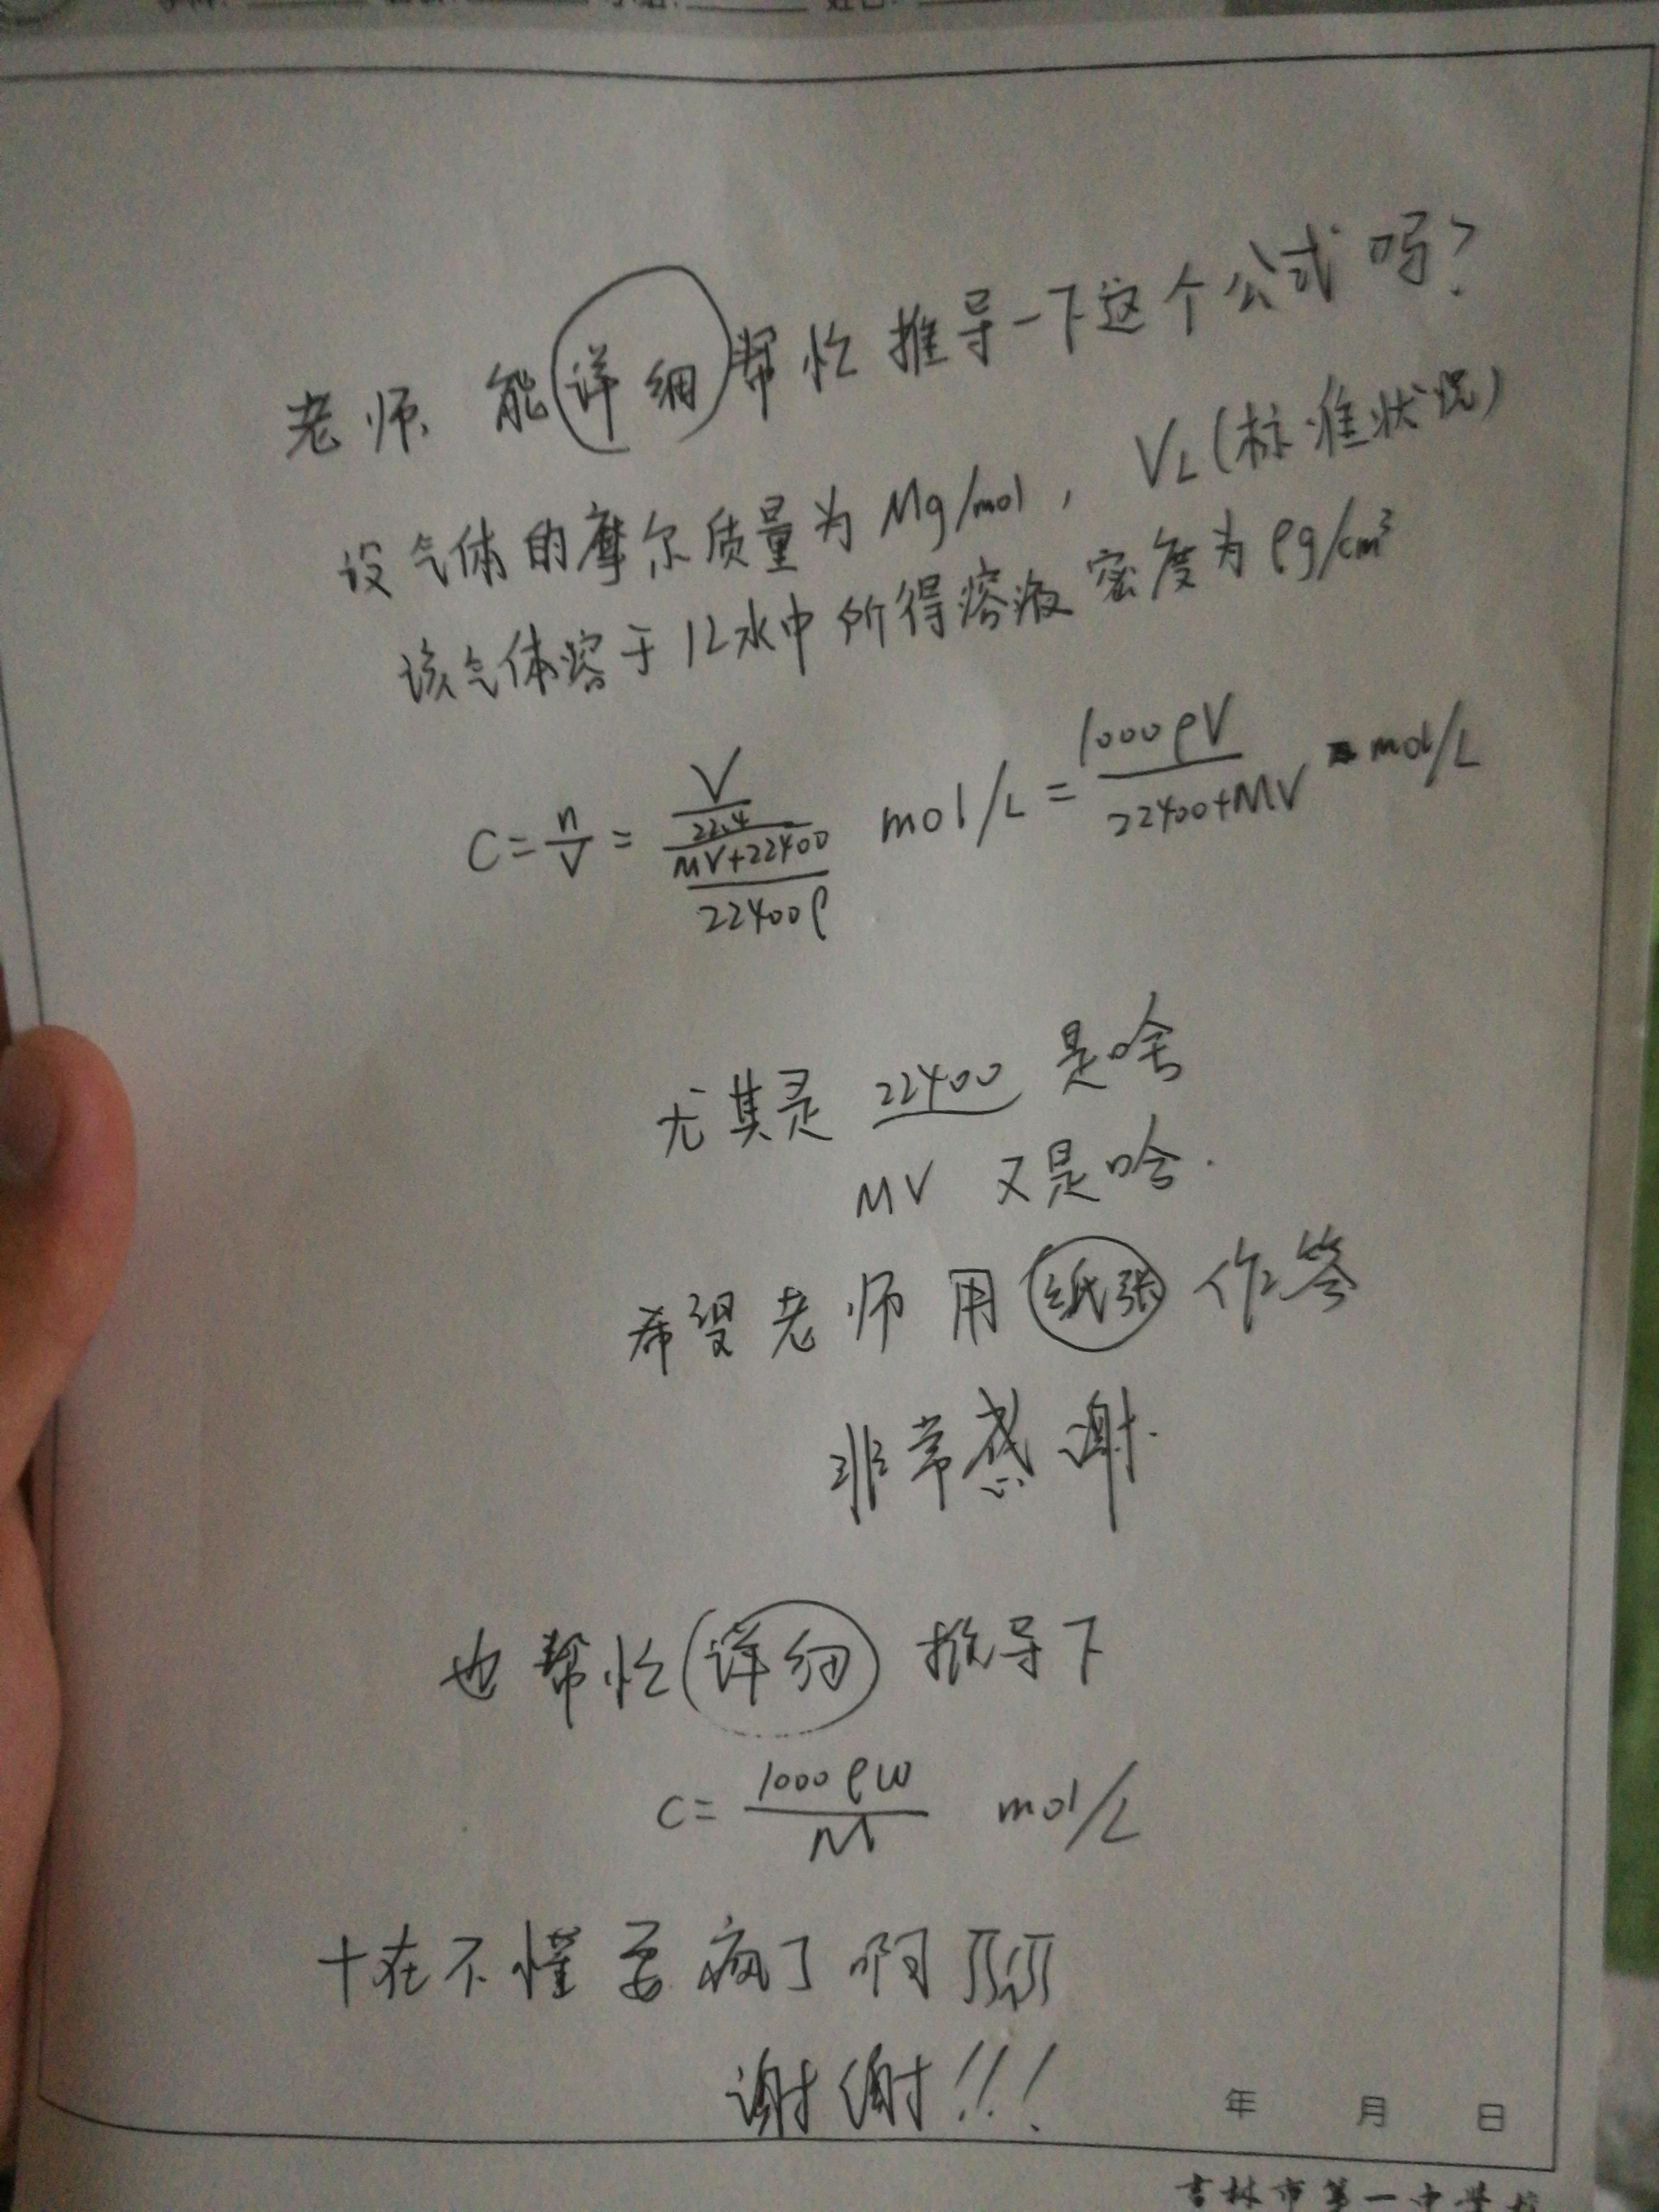 老师、能详细帮忙推导一下这个公式吗?
设气体的摩尔质量为 Mg/mol, VL(标准状况)
该气体溶于1L水中所得溶液密度为ρg/cm³
C=n/V=(V/22.4)/((MV+22400)/22400ρ) mol/L=1000ρV/(22400+MV) mol/L
尤其是 22400 是啥
MV 又是啥.
希望老师用纸张作答
非常感谢.
也帮忙详细推导下
C=1000ρω/M mol/L
十在不懂要疯了啊
谢谢!!!
年 月 日
吉林市第一中学校